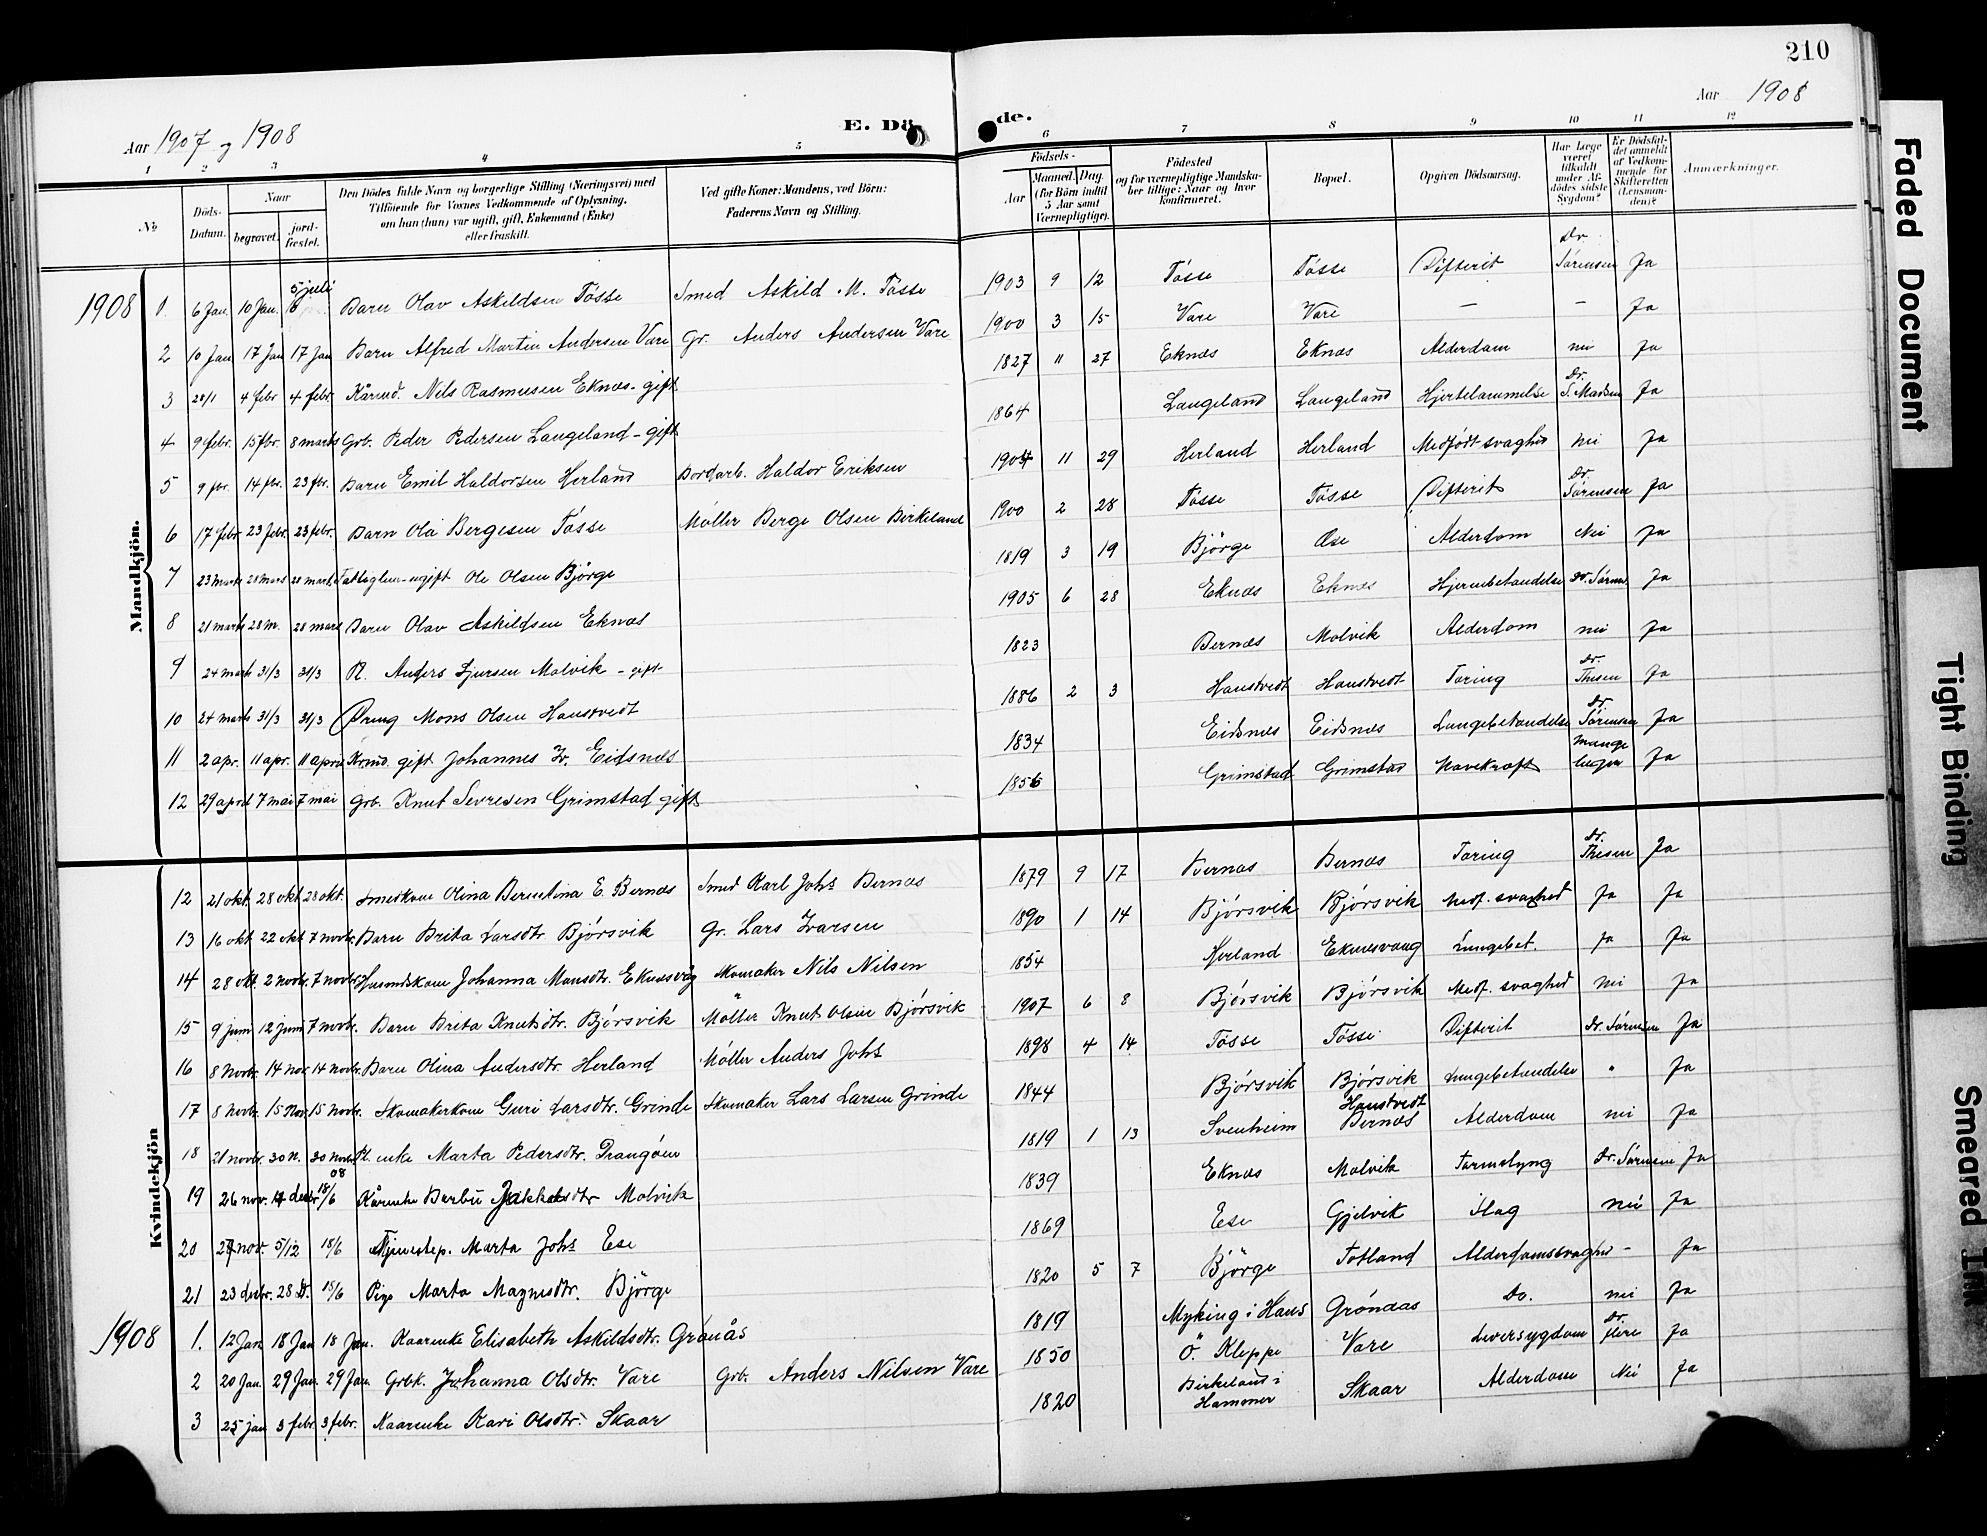 210
Aar 1907 og 1908
E. Döde.
Aar 1908
1 2 3 4 5 6 7 8 9 10 11 12
No
Döds-Datum.
Naar
begravet.
jord-fæstet.
Den Dödes fulde Navn og borgerlige Stilling (Næringsvei) med Tilföiende for Voxnes Vedkommende af Oplysning, om han (hun) var ugift, gift, Enkemand (Enke) eller fraskilt.
Ved gifte Koner: Mandens, ved Börn: Faderens Navn og Stilling.
Födsels-
Aar
Maaned. Dag.
(for Börn indtil 5 Aar samt Værnepligtige).
Födested og for værnepligtige Mandskaber tillige: Naar og hvor Konfirmeret.
Bopæl.
Opgiven Dödsaarsag.
Har Læge været tilkaldt under Afdödes sidste Sygdom?
Er Dödsfaldet anmeldt af Vedkommende for Skifteretten (Lensmanden)?
Anmærkninger.
Mandkjön.
1908 1. 6 Jan. 10 Jan. 5 juli Barn Olav Askildsen Tösse Smed Askild M. Tösse 1903 9 12 Tösse Tösse Difterit Dr. Sörensen Ja
2 10 Jan 17 Jan 17 Jan Barn Alfred Martin Andersen Vare Gr. Anders Andersen Vare 1900 3 15 Vare Vare — — Ja
3 28/1 4 febr 4 febr. Kårmd. Nils Rasmussen Eknæs - gift 1827 11 27 Eknæs Eknæs Alderdom nei Ja
4 9 febr. 15 fbr. 8 marts Grb. Peder Pedersen Langeland - gift 1864 Langeland Langeland Hjertelammelse Dr. S. Madsen Ja
5 9 fbr. 14 fbr. 23 fbr. Barn Emil Haldorsen Herland Bordarb. Haldor Eriksen 1904 11 29 Herland Herland Medfödt svaghed nei Ja
6 17 febr 23 febr. 23 febr. Barn Ola Bergesen Tösse Möller Berge Olsen Birkeland 1900 2 28 Tösse Tösse Difterit Dr. Sörensen Ja
7 23 marts 28 mars 28 marts ugift Ole Olsen Björge 1819 3 19 Björge Ose Alderdom Nei Ja
8 21 marts 28 m. 28 mars Barn Olav Askildsen Eknæs 1905 6 28 Eknæs Eknæs Hjernebetændelse Dr. Sörens. Ja
9 24 marts 31/3 31/3 Anders Sjursen Molvik - gift 1823 Bernæs Molvik Alderdom nei Ja
10 24 marts 31/3 31/3 Dreng Mons Olsen Haustvedt 1886 2 3 Haustvedt Haustvedt Tæring Dr. Thesen Ja
11 2 apr. 11 apr. 11 april Krmd. gift Johannes Iv. Eidsnæs 1834 Eidsnæs Eidsnæs Lungebetændelse Dr. Sörensen Ja
12 29 april 7 mai 7 mai Grb. Knut Sevresen Grimstad gift 1856 Grimstad Grimstad Mavekræft mange læger Ja
Kvindekjön
12 21 okt 28 okt 28 okt. Smedkone Olina Berentina E. Bernæs Smed Karl Johs Bernæs 1879 9 17 Bernæs Bernæs Tæring Dr. Thesen Ja
13 16 okt 22 okt 7 novbr. Barn Brita Larsdtr Björsvik Gr. Lars Ivarsen 1890 1 14 Björsvik Björsvik Medf. svaghed Ja Ja
14 28 okt. 2 novbr. 7 novbr Husmdskone Johanna Monsdtr. Eknesvåg Skomaker Nils Nilsen 1854 Herland Eknesvaag Lungebet. Ja Ja
15 9 juni 12 juni 7 novbr. Barn Brita Knutsdtr. Björsvik Möller Knut Olsen Björsvik 1907 6 8 Björsvik Björsvik Medf. svaghed nei Ja
16 8 Novbr. 14 nov 14 novbr. Barn Olina Andersdtr. Herland Möller Anders Johs 1898 4 14 Tösse Tösse Difterit Dr. Sörensen Ja
17 8 Novbr. 15 Nov. 15 novbr. Skomakerkone Guri Larsdtr. Grinde Skomaker Lars Larsen Grinde 1844 Björsvik Björsvik Lungebetændelse " Ja
18 21 novbr. 30 n. 30 novbr. enke Marta Pedersdtr. 1819 1 13 Svenheim Haustvedt Bernæs Alderdom nei Ja
19 26 nov. 4 decbr. 18/6 08 Kårenke Barbu Jakkobsdtr Molvik 1839 Eknæs Molvik Tarmslyng Dr. Sörensen Ja
20 27 nov. 5/12 18/6 Tjenestep. Marta Johs Ese 1869 Ese Gjelvik Slag nei Ja
21 23 decbr. 28 D. 18/6 Pige Marta Magnesdtr. Björge 1820 5 7 Björge Totland Alderdomssvaghed - Ja
1908 1. 12 Jan 18 Jan 18 Jan. Kaarenke Elisabeth Askildsdtr. Grönås 1819 Myking i Haus Gröndas Do. nei Ja
2 20 Jan. 29 Jan. 29 Jan. Grbk. Johanna Olsdtr. Vare Grb. Anders Nilsen Vare 1850 Ö. Kleppe Vare Leversygdom Dr. flere Ja
3 25 jan 3 febr 3 febr. Kaarenke Kari Olsdtr. Skaar 1820 Birkeland i Hammer Skaar Alderdom Nei Ja
Faded Document
Tight Binding
Smeared Ink